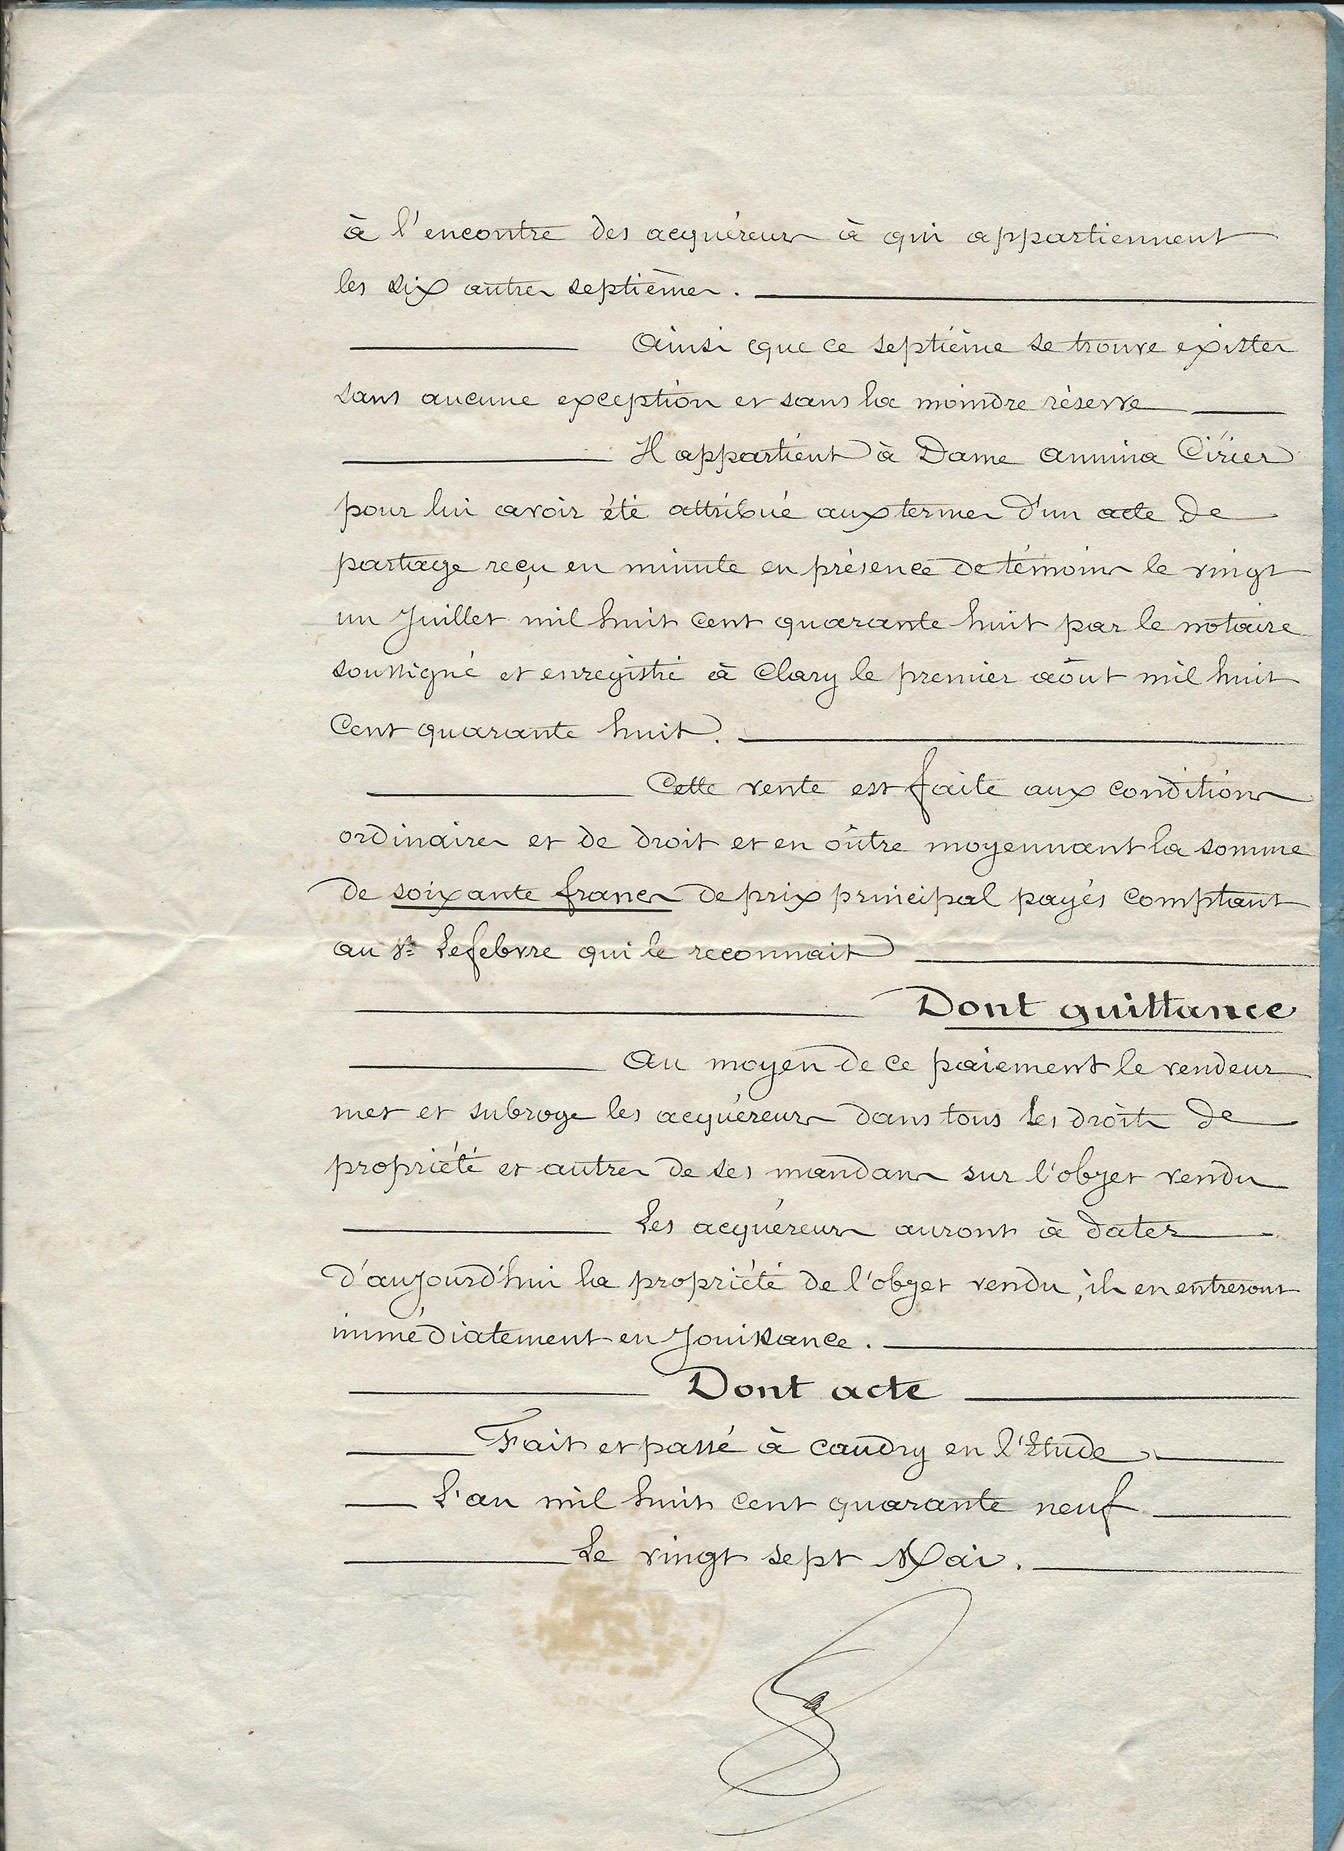 à l'encontre des acquéreurs à qui appartiennent
les six autres septièmes.
Ainsi que ce septième se trouve exister
sans aucune exception et sans la moindre réserve
Il appartient à Dame Annina Cirier
pour lui avoir été attribué aux termes d'un acte de
partage reçu en minute en présence de témoins le vingt
un Juillet mil huit cent quarante huit par le notaire
soussigné et enregistré à Clary le premier août mil huit
Cent quarante huit.
Cette vente est faite aux conditions
ordinaires et de droit et en oûtre moyennant la somme
de soixante francs de prix principal payés comptant
au Sr. Lefebvre qui le reconnait
Dont quittance
Au moyen de ce paiement le vendeur
met et subroge les acquéreurs dans tous les droits de
propriété et autres de ses mandans sur l'objet vendu
Les acquéreurs auront à dater
d'aujourd'hui la propriété de l'objet vendu, ils en entreront
immédiatement en Jouissance.
Dont acte
Fait et passé à Caudry en l'Etude
L'an mil huit cent quarante neuf
Le vingt sept Mai.